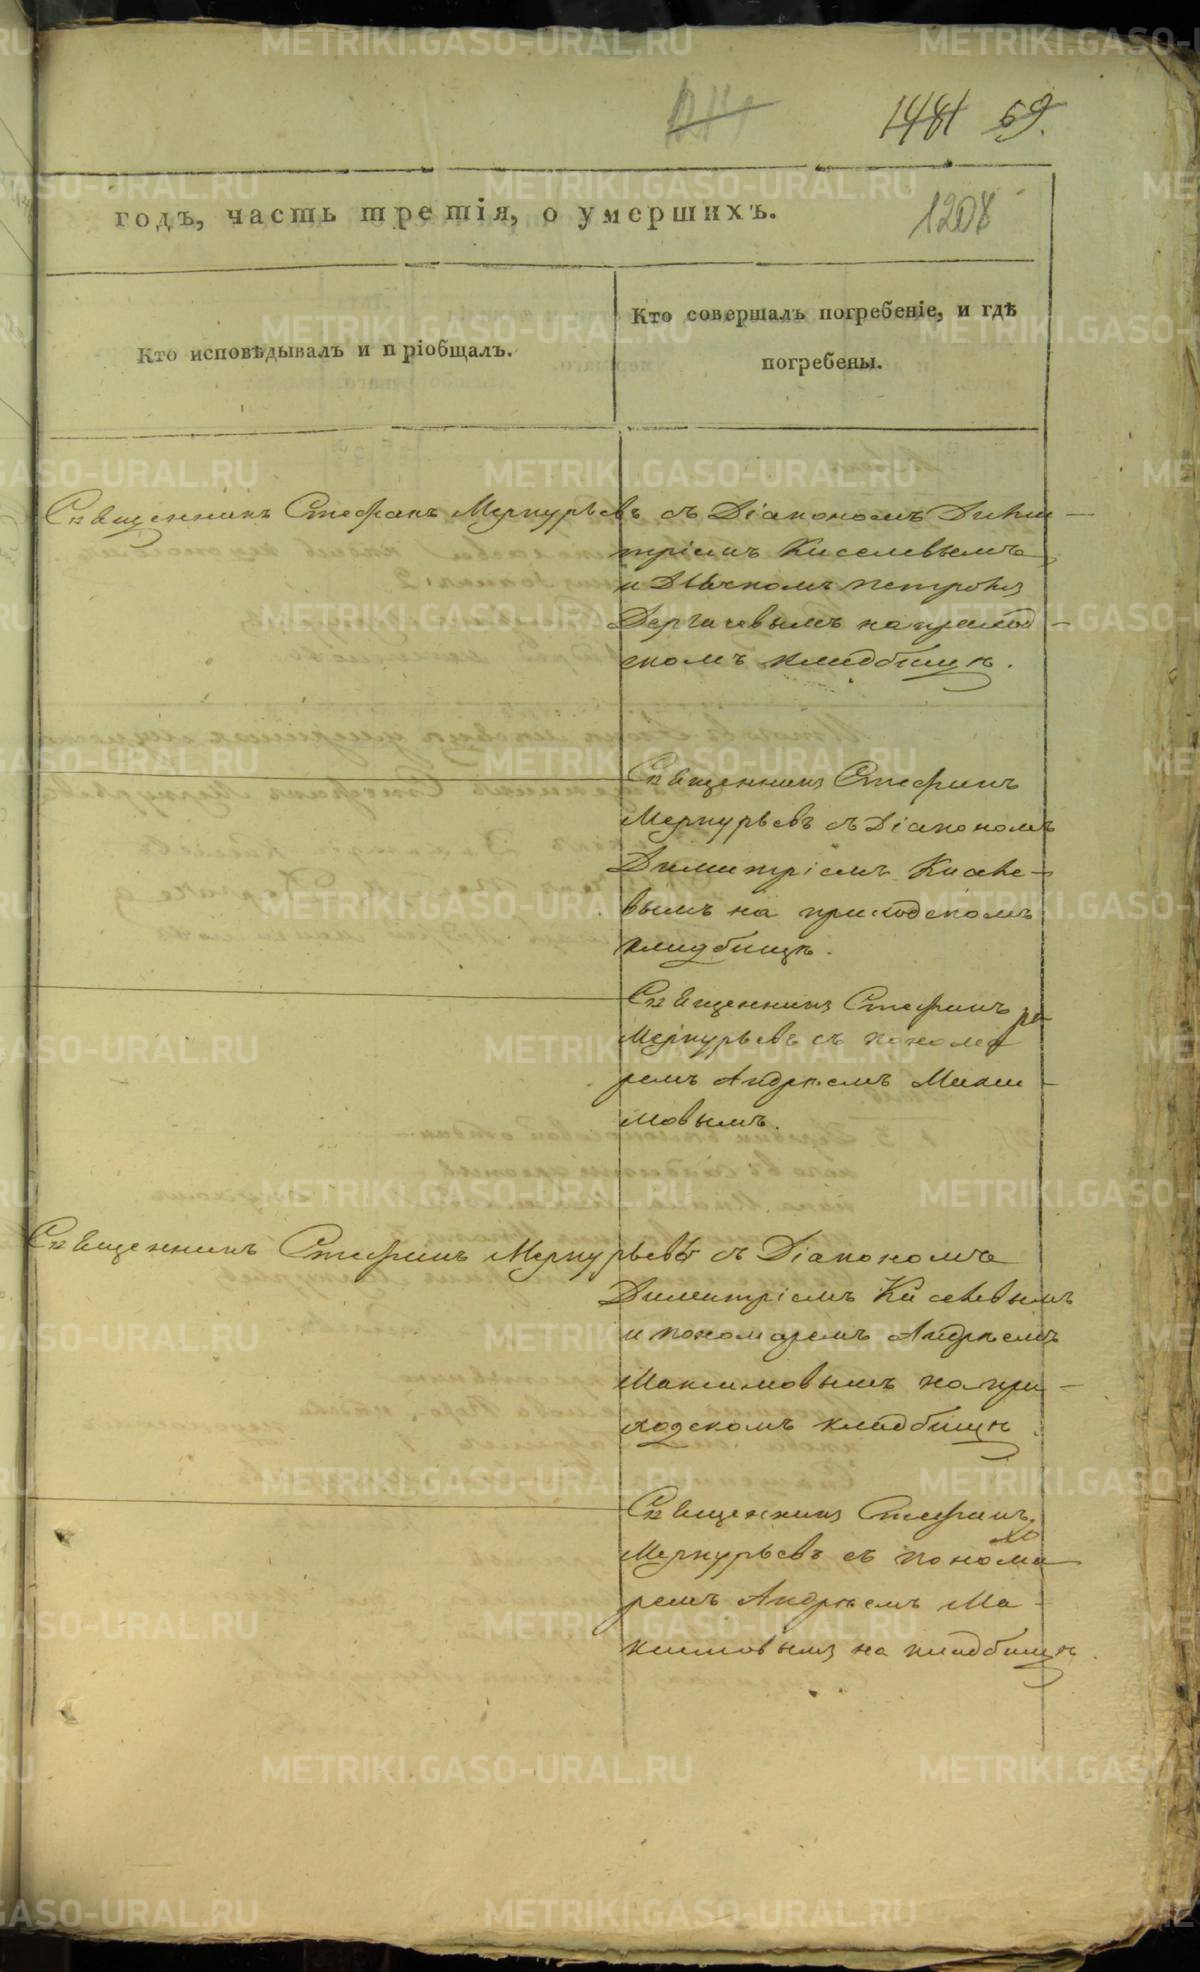 1481 69.
годъ, часть третія, о умершихъ.
1208
Кто исповѣдывалъ и пріобщалъ.
Кто совершалъ погребеніе, и гдѣ
погребены.
Священникъ Стефанъ Меркурьевъ съ Діакономъ Дими-
тріемъ Киселевымъ
и Дьячкомъ Петромъ
Дергачевымъ на приход-
скомъ кладбищѣ.
Священникъ Стефанъ
Меркурьевъ съ Діакономъ
Димитріемъ Киселе-
вымъ на приходскомъ
кладбищѣ.
Священникъ Стефанъ
Меркурьевъ съ понома
ремъ Андреемъ Макси-
мовымъ.
Священникъ Стефанъ Меркурьевъ съ Діакономъ
Димитріемъ Киселевымъ
и пономаремъ Андреемъ
Максимовымъ на при-
ходскомъ кладбищѣ
Священникъ Стефанъ
Меркурьевъ съ понома
ремъ Андреемъ Ма-
ксимовымъ на кладбищѣ.
METRIKI.GASO-URAL.RU